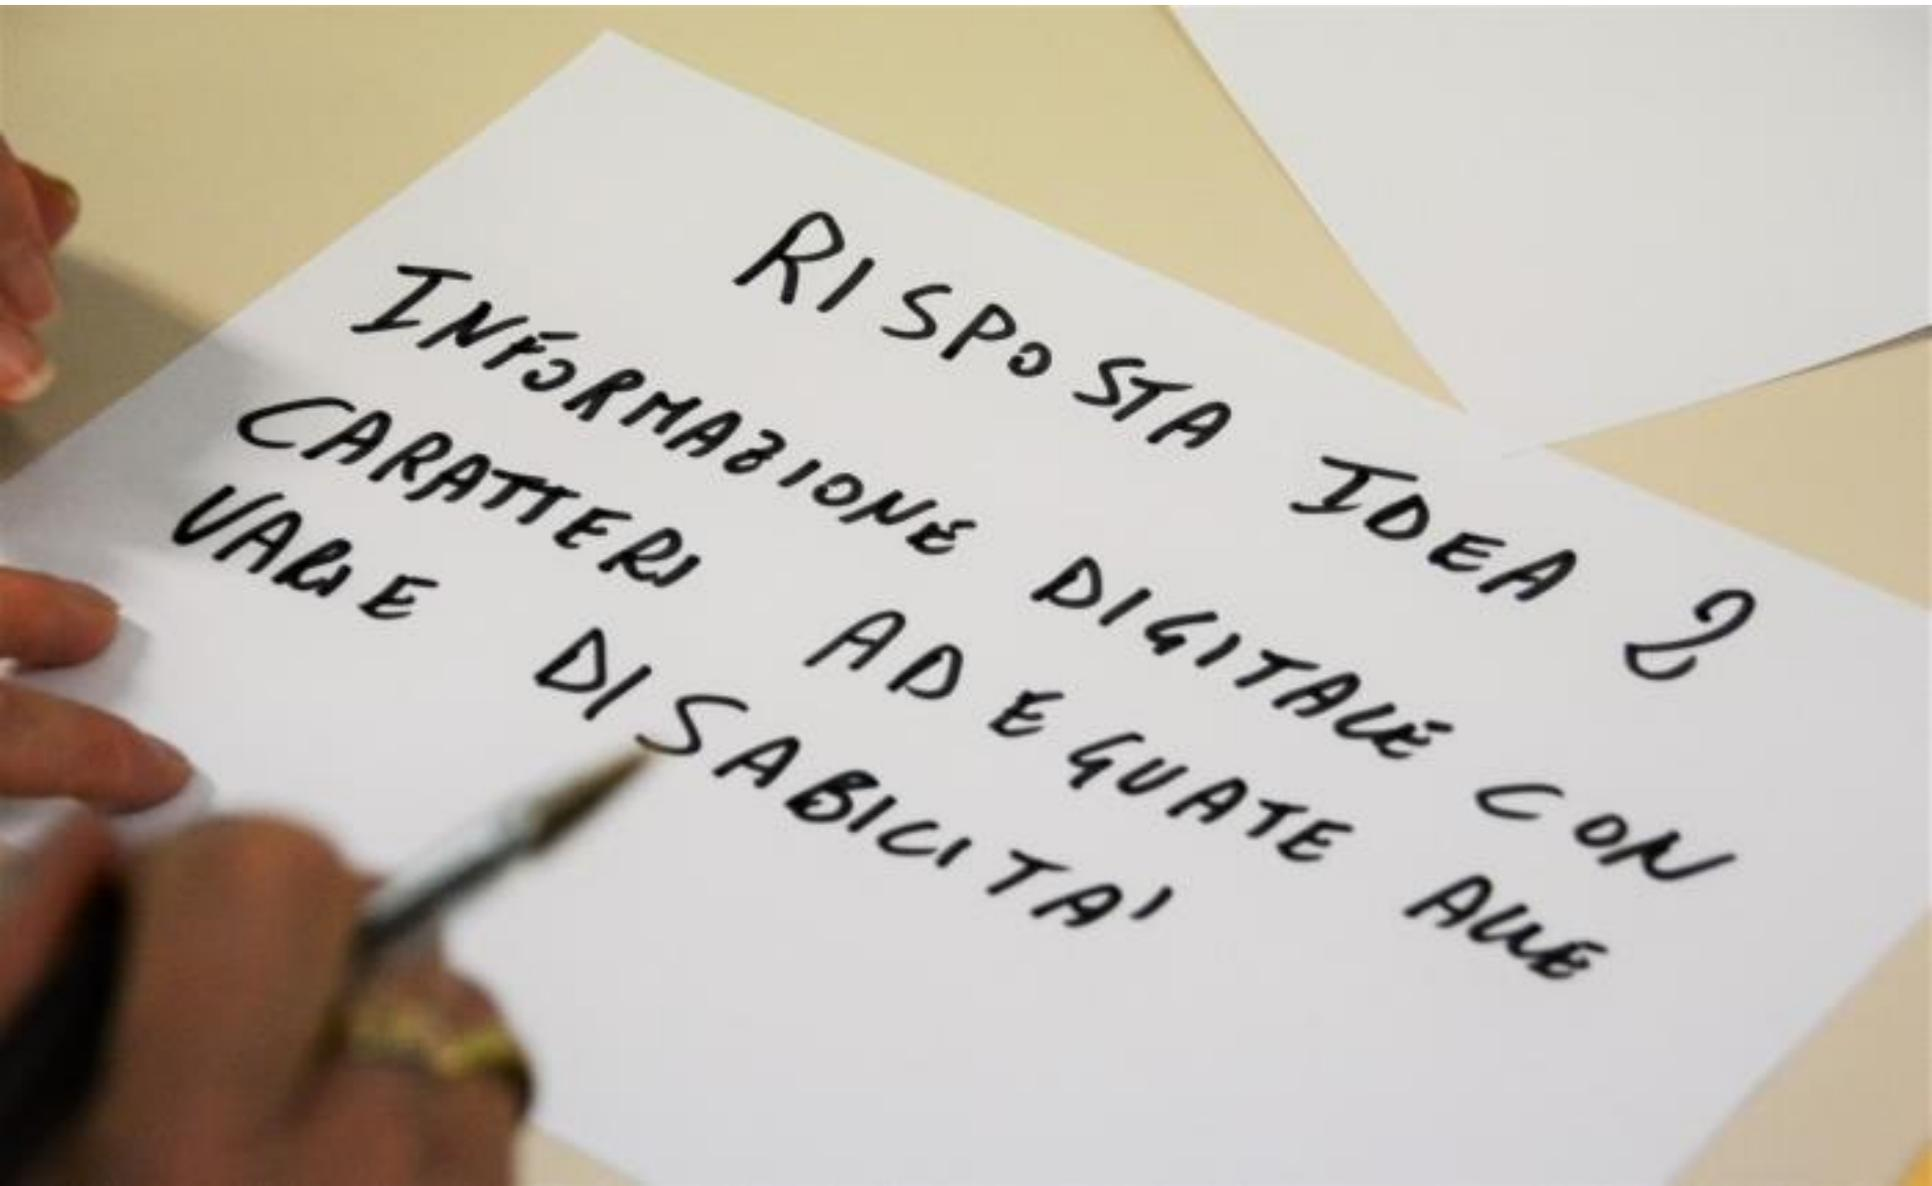 RISPOSTA IDEA 2
INFORMAZIONE DIGITALE CON
CARATTERI ADEGUATE ALLE
VARIE DISABILITA'